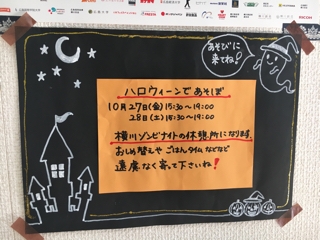 あそびに
来てね♪
ハロウィーンであそぼ
10月27日(金)15:30〜19:00
28日(土)15:30〜19:00
横川ゾンビナイトの休憩所になります。
おしめ替えや ごはんタイムなどなど
遠慮なく寄って下さいね!